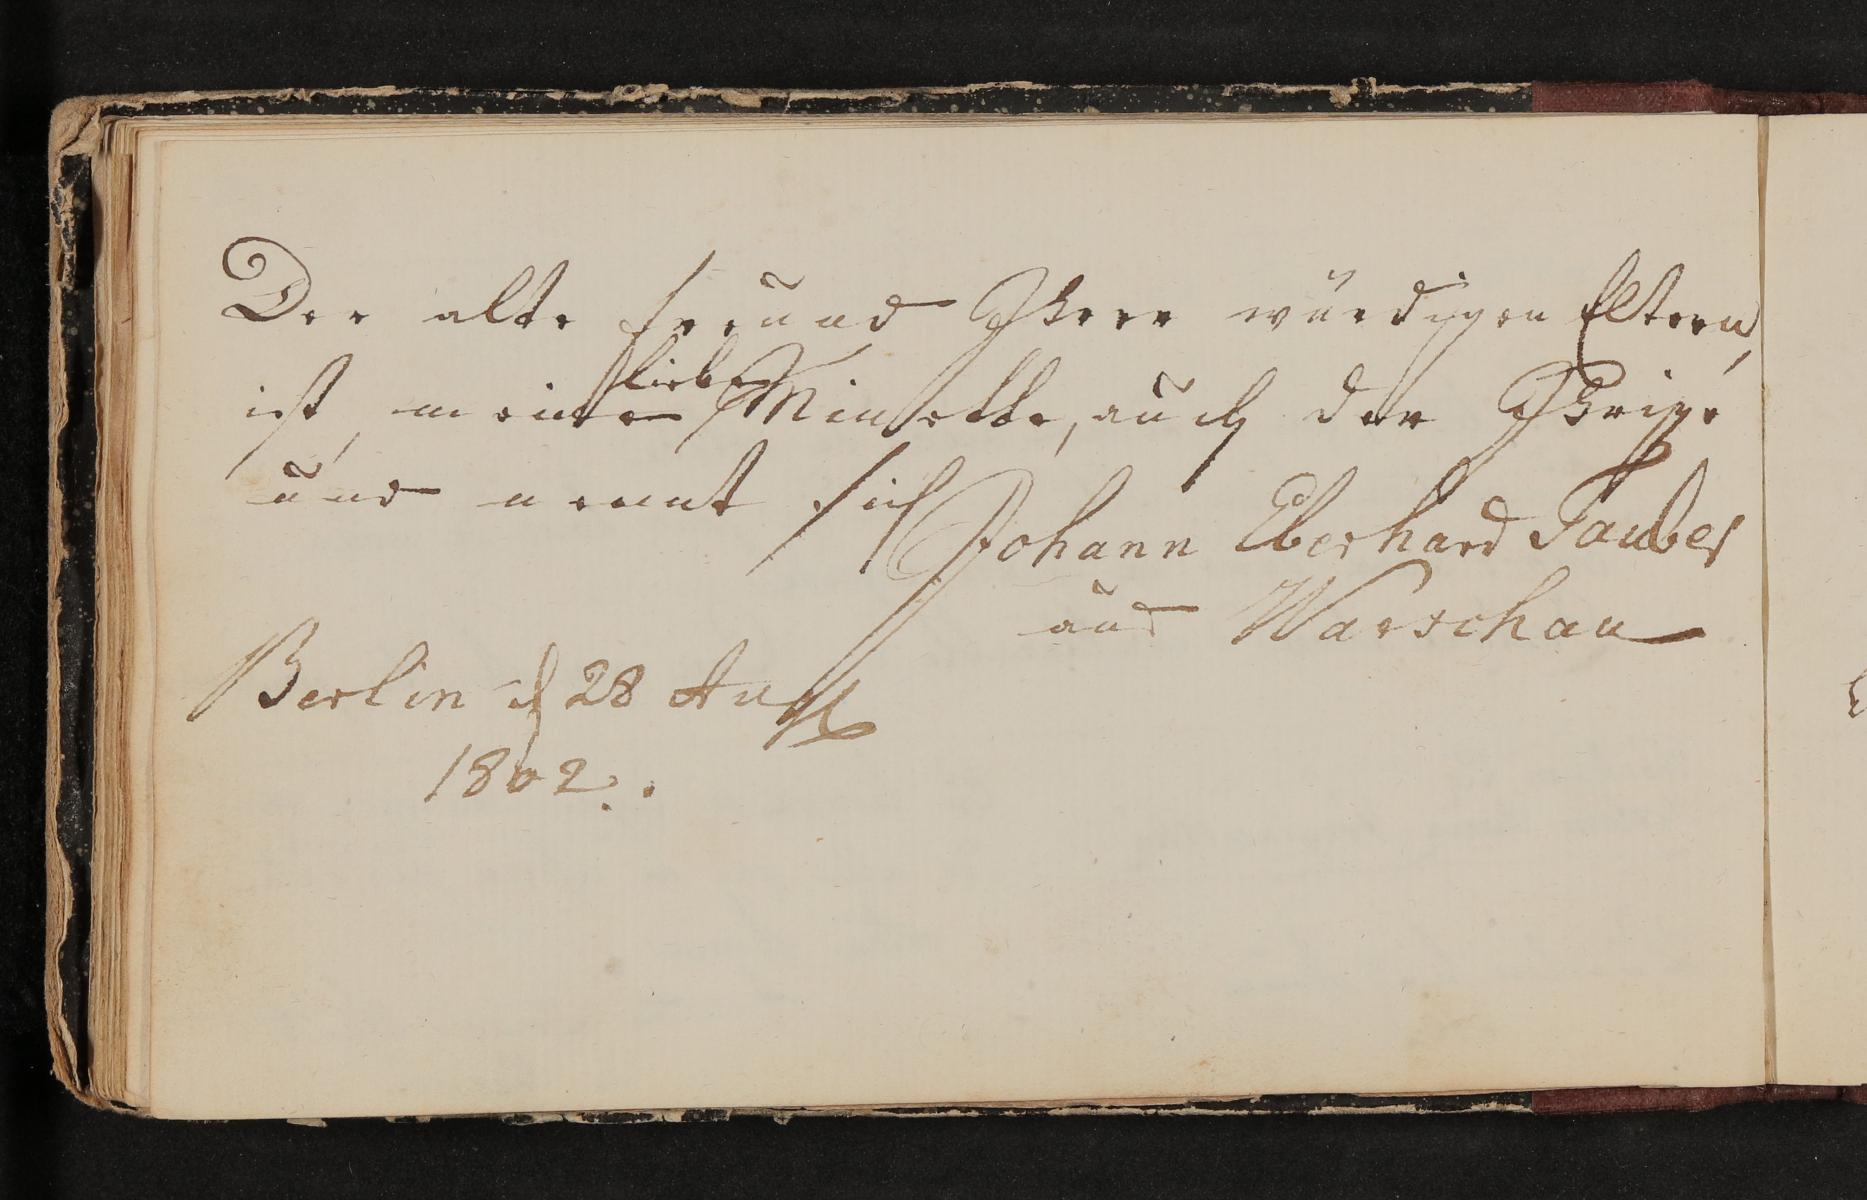 Der alte Freund Ihrer würdigen Eltern,
ist, meine liebe Minette, auch der Ihrige
und nennt sich Johann Eberhard Tauber
aus Warschau
Berlin d 28 Aug
1802.